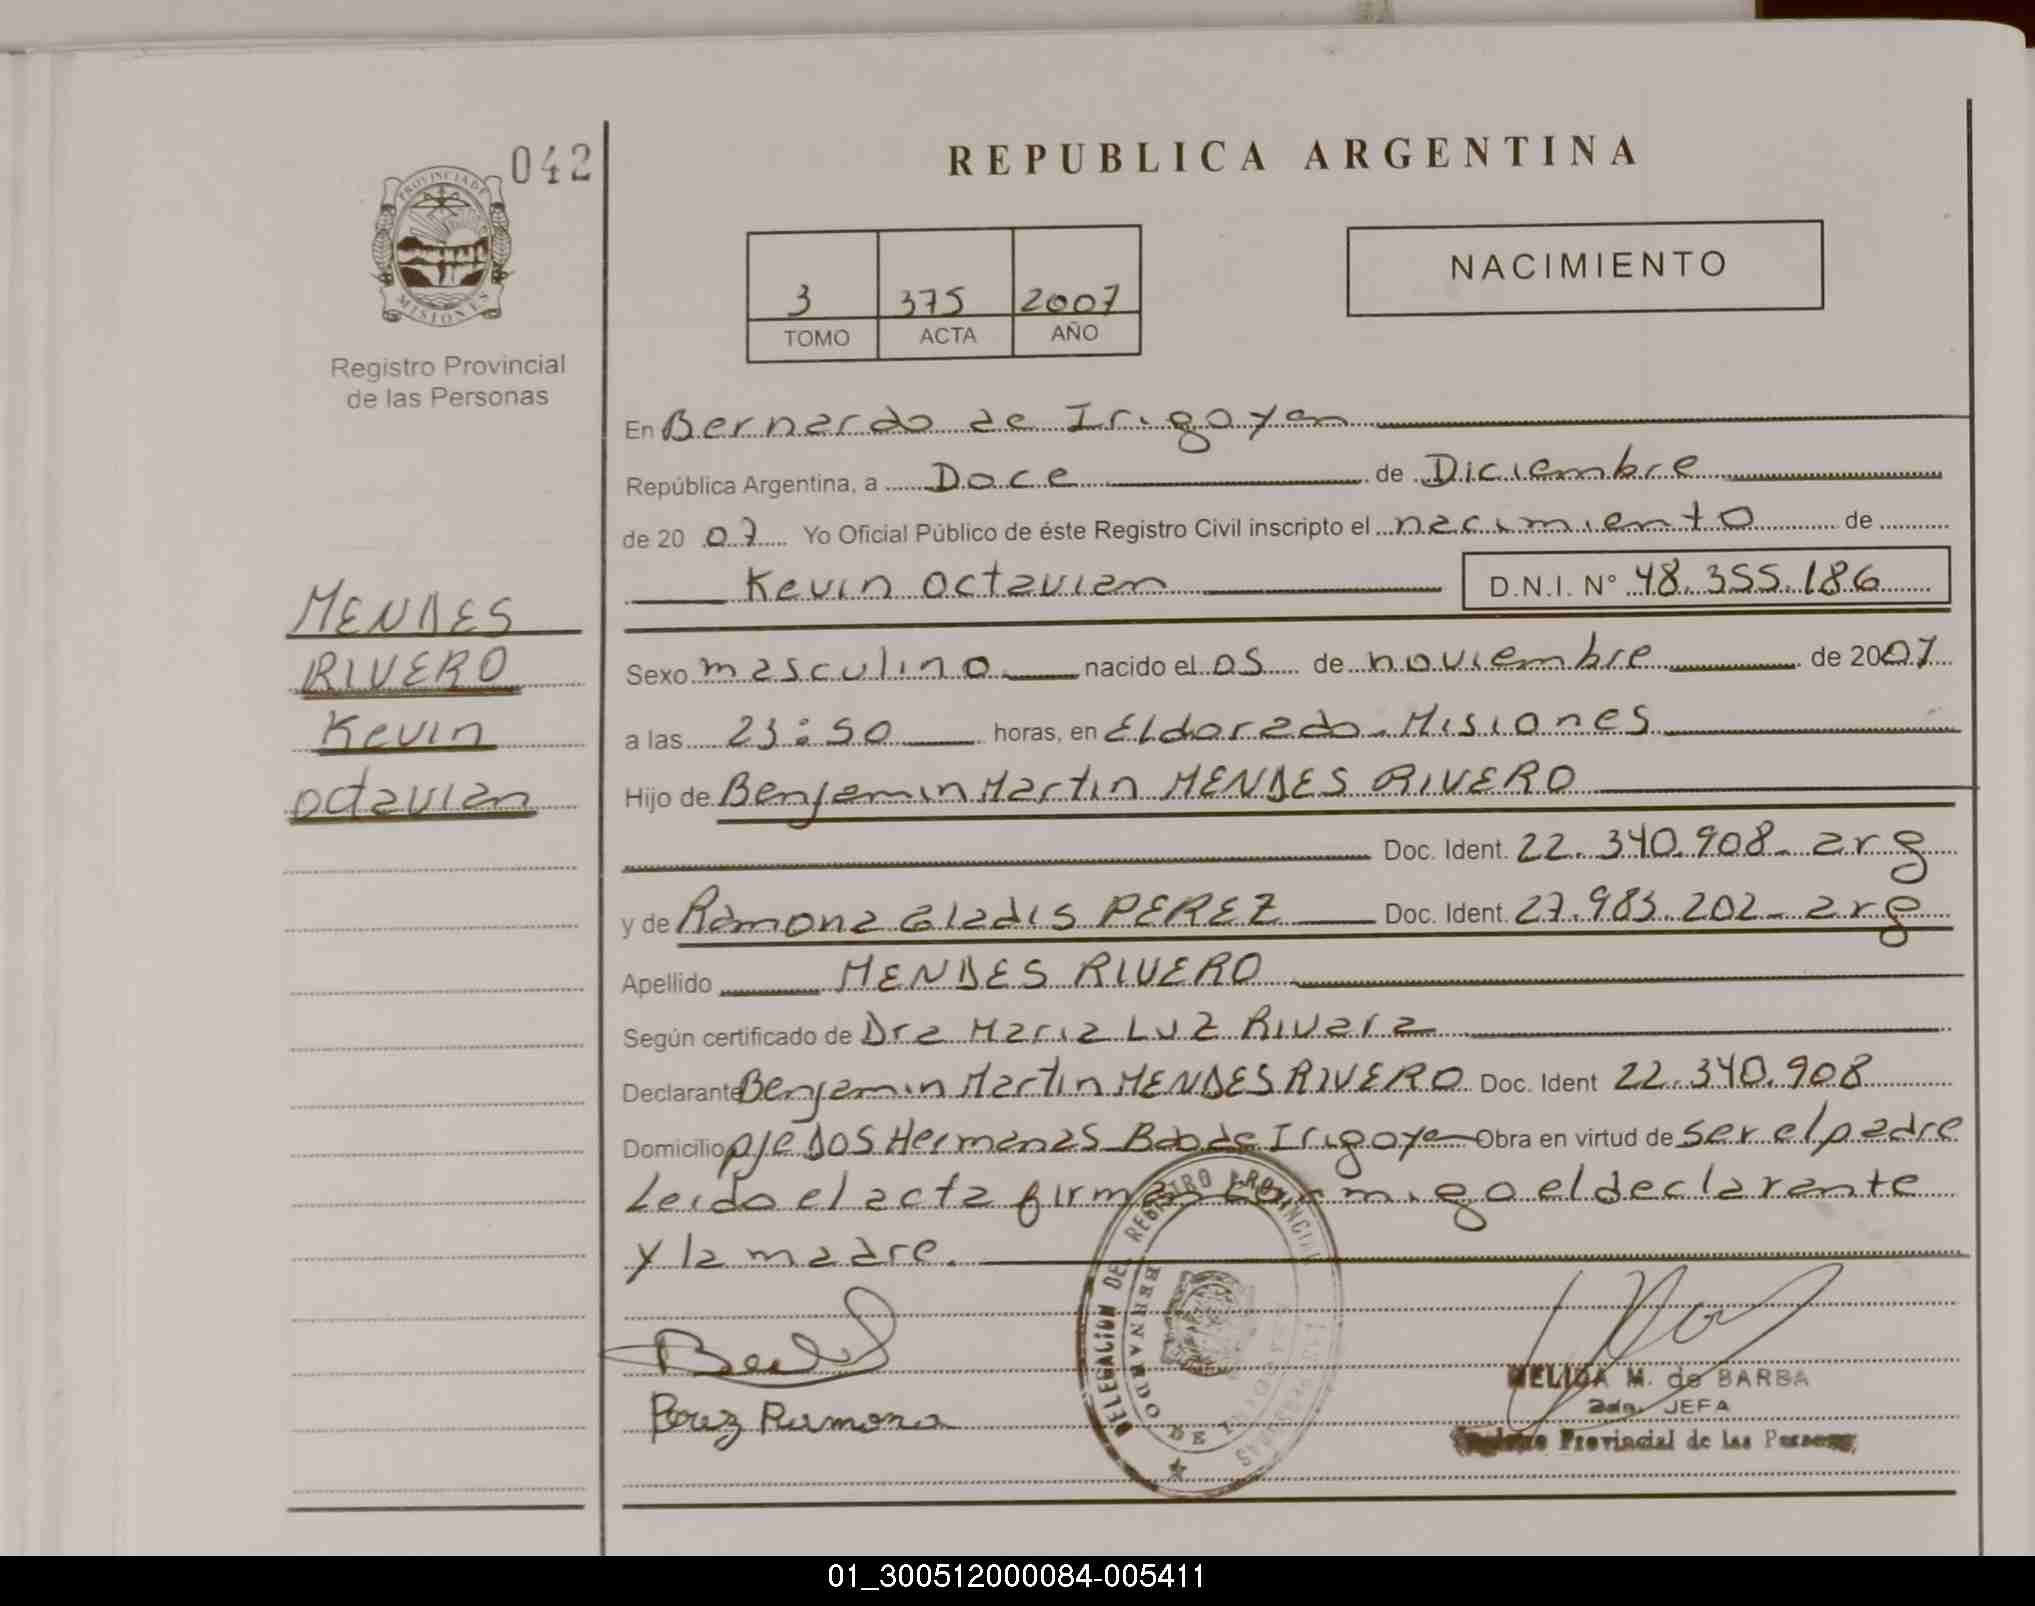 042
PROVINCIA DE
MISIONES
Registro Provincial
de las Personas
MENDES
RIVERO
Kevin
octavian
REPUBLICA ARGENTINA
3 375 2007
TOMO ACTA AÑO
NACIMIENTO
En Bernardo de Irigoyen
República Argentina, a Doce de Diciembre
de 20 07 Yo Oficial Público de éste Registro Civil inscripto el nacimiento de
Kevin octavian D.N.I. N° 48.355.186
Sexo masculino nacido el 05 de noviembre de 2007
a las 23:50 horas, en Eldorado-Misiones
Hijo de Benjamin Martin MENDES RIVERO
Doc. Ident. 22.340.908-arg
y de Ramona Gladis PEREZ Doc. Ident. 27.983.202-arg
Apellido MENDES RIVERO
Según certificado de Dra Maria Luz Rivara
Declarante Benjamin Martin MENDES RIVERO Doc. Ident 22.340.908
Domicilio pje Dos Hermanas Bdo de Irigoyen Obra en virtud de ser el padre
Leido el acta firman conmigo el declarante
y la madre.
DELEGACION DEL REGISTRO PROVINCIAL
BERNARDO DE IRIGOYEN
Perez Ramona
NELIDA M. de BARBA
JEFA
Provincial de las Personas
01_300512000084-005411